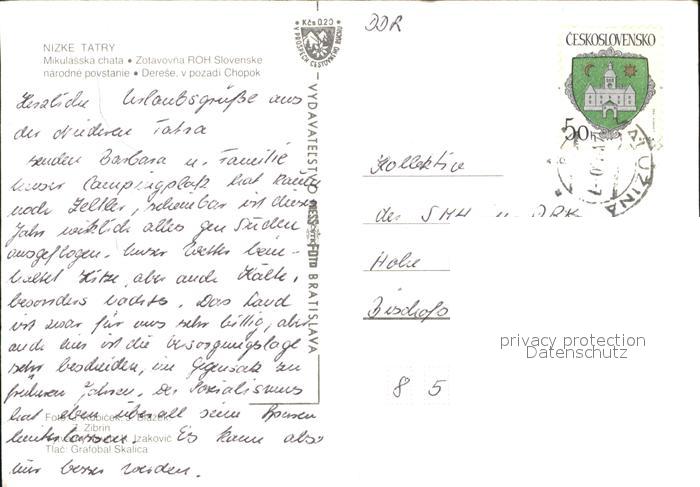 NIZKE TATRY
Mikulášska chata • Zotavovňa ROH Slovenske
národne povstanie • Dereše, v pozadí Chopok
Herzliche Urlaubsgrüße aus
der Niederen Tatra
senden Barbara u. Familie
Unser Campingplatz hat kaum
noch Zeltler, scheinbar ist dieses
Jahr wirklich alles gen Süden
ausgeflogen. Unser Wetter bein-
haltet Hitze, aber auch Kälte,
besonders nachts. Das Land
ist zwar für uns sehr billig, aber
auch hier ist die Versorgungslage
sehr bescheiden, im Gegensatz zu
früheren Jahren. Der Sozialismus
hat eben überall seine Spuren
hinterlassen. Es kann also
nur besser werden.
Foto: Kubíček, J. Blažek
Z. Zibrin
Izakovič
Tlač: Grafobal Skalica
Kčs 0.20
VYDAVATEĽSTVO PRESSFOTO BRATISLAVA
DDR
ČESKOSLOVENSKO
50h
MALUŽINÁ
Kollektiv
der SMH DRK
Hohe
Bischofs
8 5
privacy protection
Datenschutz